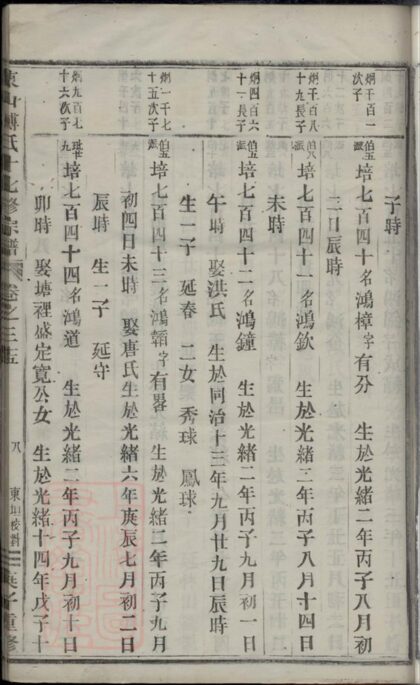 子時
烱千百一次子 培七百四十名鴻樟字有芬 生於光緒二年丙子八月初
二日辰時
烱千百八十九長子 培七百四十一名鴻欽 生於光緒二年丙子八月十四日
未時
烱四百六十一長子 培七百四十二名鴻鐘 生於光緒二年丙子九月初一日
午時 娶洪氏 生於同治十三年九月廿九日辰時
生一子 延春 二女 秀球 鳳球
烱一千七十五次子 培七百四十三名鴻韜字有畧 生於光緒二年丙子九月
初四日未時 娶唐氏生於光緒六年庚辰七月初二日
辰時 生一子 延守
烱九百七十六次子 培七百四十四名鴻道 生於光緒二年丙子九月初十日
卯時 娶塘裡盛定寬公女 生於光緒十四年戊子十
氏十七修宗譜 卷之三五 八 重修